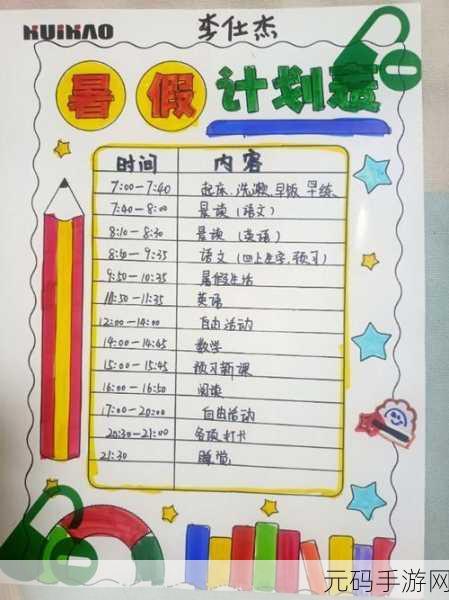 KUIKAO
李仕杰
暑假计划表
时间 内容
7:00－7:40 起床、洗漱、早饭、早练
7:40－8:00 晨读（语文）
8:10－8:30 晨读（英语）
8:40－9:35 语文（四上生字、预习）
9:50－10:35 暑假生活
10:50－11:35 英语
12:00－14:00 自由活动
14:00－14:45 数学
15:00－15:45 预习新课
16:00－16:50 阅读
17:00－20:00 自由活动
20:30－21:00 各项打卡
21:30 睡觉
元码手游网